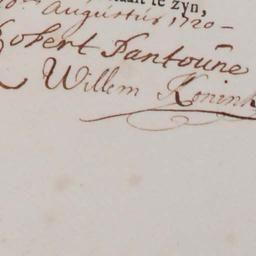 te zyn,
Augustus 1720 -
Robert Santoüne
Willem Konink